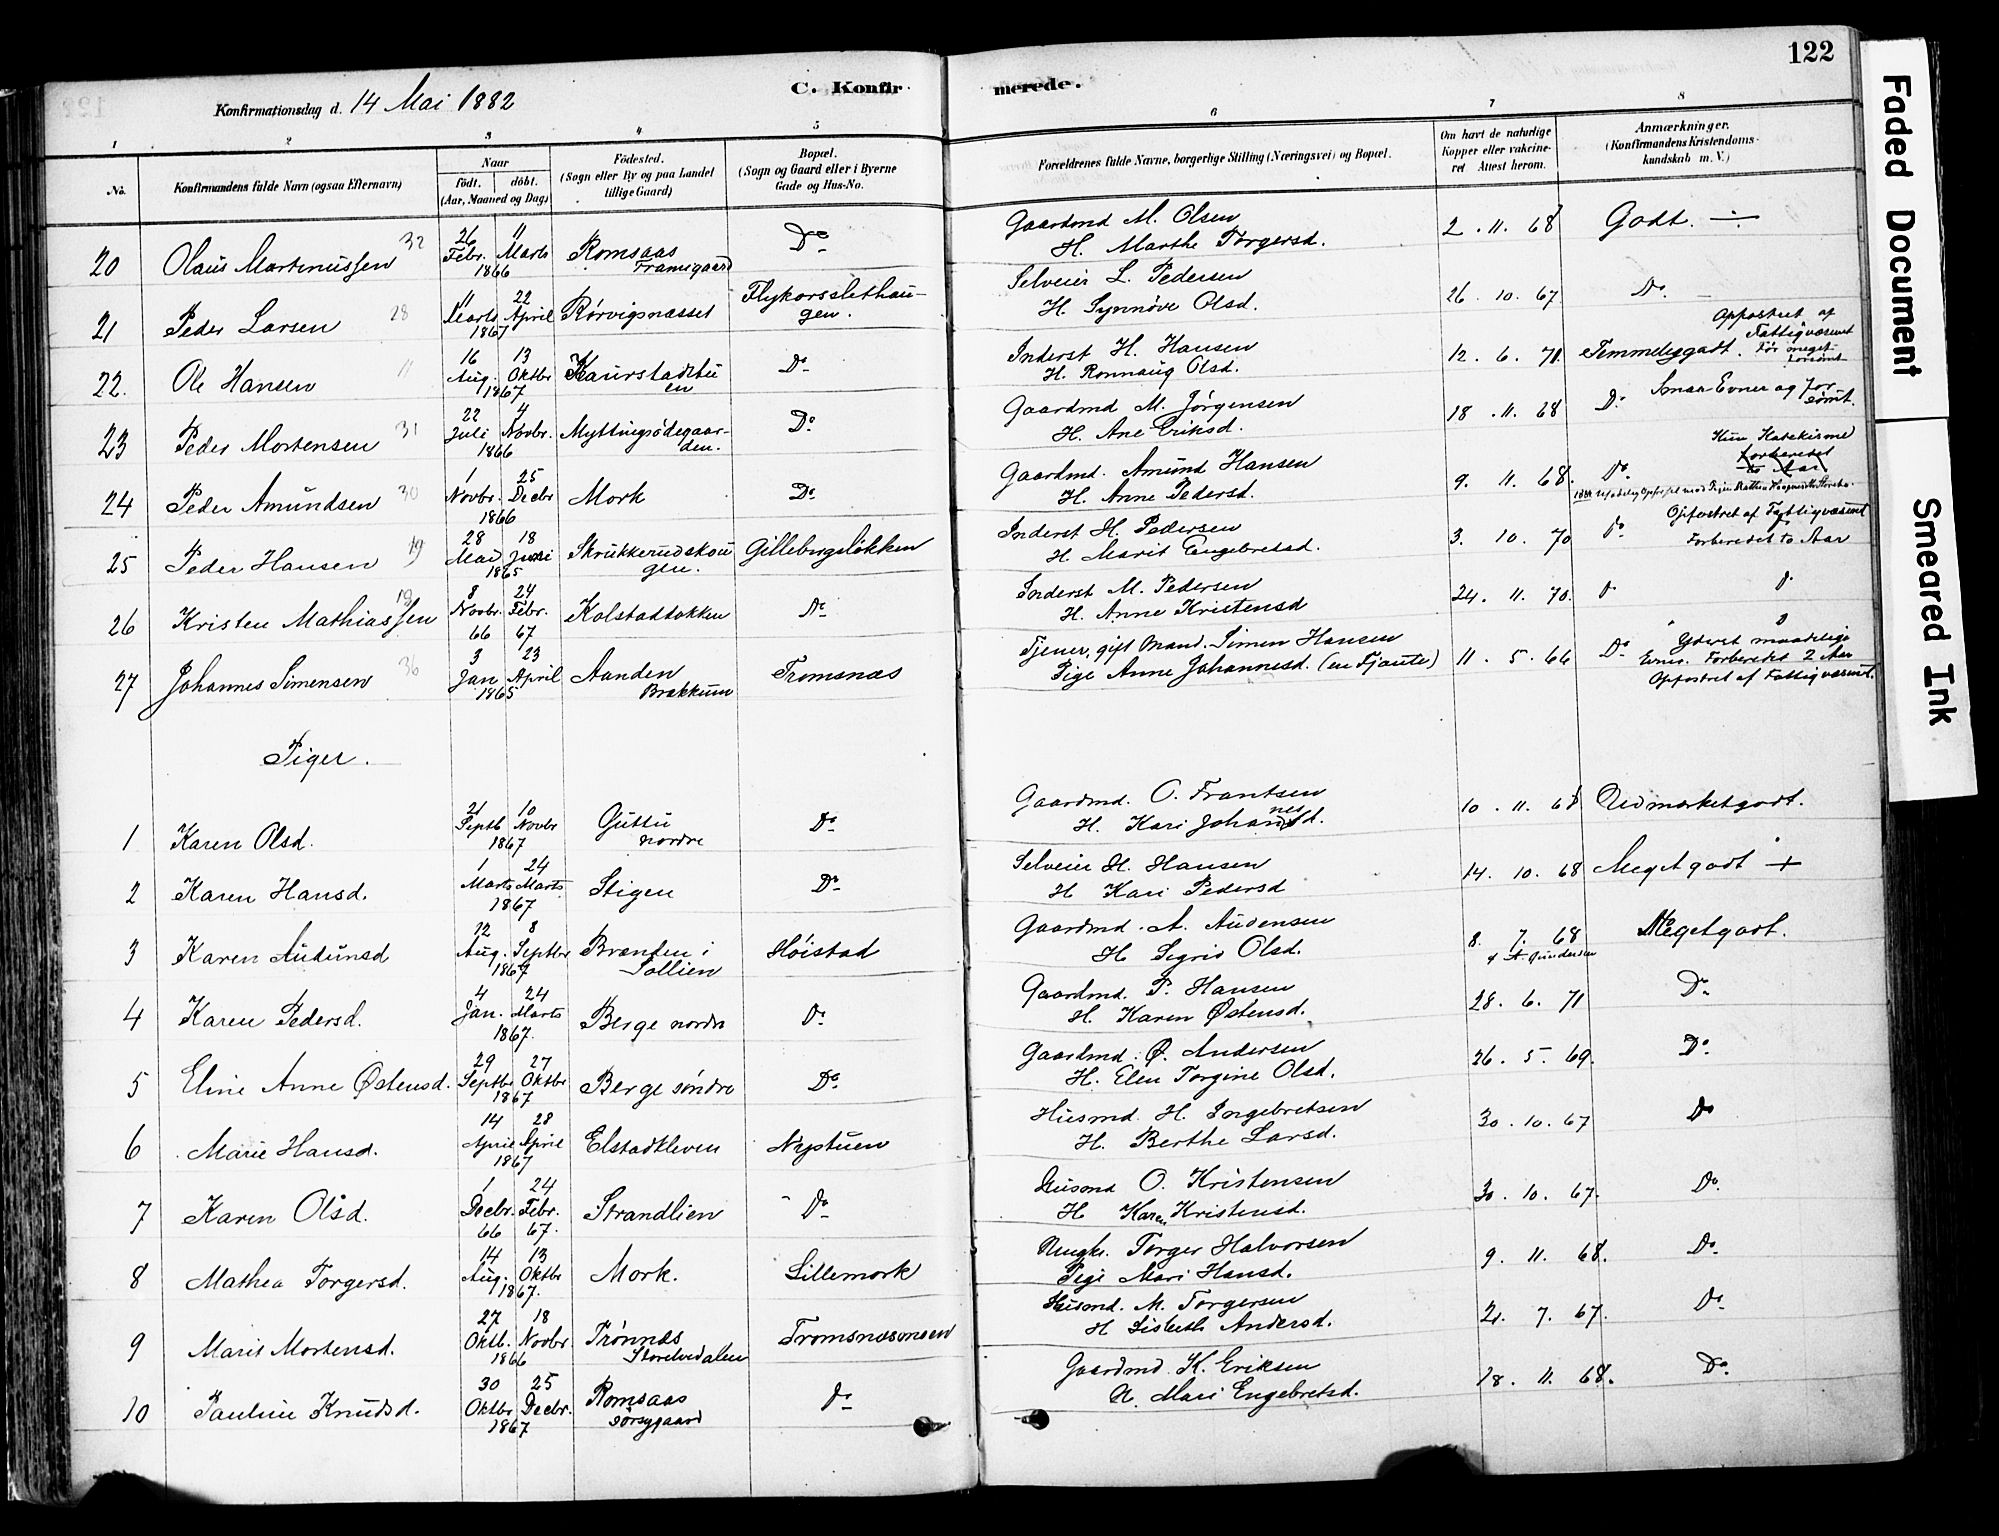 122
C. Konfirmerede.
Konfirmationsdag d. 14 Mai 1882
1 2 3 4 5 6 7 8
No. Konfirmandens fulde Navn (ogsaa Efternavn)
Naar født. døbt. (Aar, Maaned og Dag)
Fødested. (Sogn eller By og paa Landet tillige Gaard)
Bopæl. (Sogn og Gaard eller i Byerne Gade og Hus-No.
Forældrenes fulde Navne, borgerlige Stilling (Næringsvei) og Bopæl.
Om havt de naturlige Kopper eller vakcineret Attest herom.
Anmærkninger. (Konfirmandens Kristendomskundskab m. V.)
20 Olaus Martinussen 32 26 Febr. 11 Marts 1866 Romsaas Framigaard Do Gaardmd M. Olsen H. Marthe Torgersd. 2. 11. 68 Godt. ÷
21 Peder Larsen 28 11 Marts 22 April 1867 Rørvignæsset Flykorsslethaugen. Selveier L. Pedersen H. Synnøve Olsd. 26. 10. 67 Do.
22. Ole Hansen 11 16 Aug. 13 Oktbr 1867 Kaurstadstuen Do Inderst H. Hansen H. Ronnaug Olsd. 12. 6. 71. Temmeliggodt. Oppostret af Fattigvæsenet Før meget forsømt
23 Peder Mortensen 31 22 Juli 4 Novbr. 1866 Myttingsødegaarden. Do Gaardmd M. Jørgensen H. Ane Eriksd. 18. 11. 68 Do Smaa Evner og forsømt.
24 Peder Amundsen 30 1 Novbr. 25 Decbr 1866 Mork Do Gaardmd. Amund Hansen H. Anne Pedersd. 9. 11. 68. Do Kun Katekisme Forberedet to Aar
25 Peder Hansen 19 28 Mai 18 Juni 1865 Skrukkerudskougen. Gillebergsløkken Inderst H. Pedersen H. Marit Engebretsd. 3. 10. 70 Do Opfostret af Fattigvæsenet Forberedet to Aar
26 Kristen Mathiassen 18 8 Novbr. 66 24 Febr. 67 Kolstadløkken Do Inderst M. Pedersen H. Anne Kristensd 24. 11. 70. Do Do
27 Johannes Simensen 36 3 Jan 23 April 1865 Aanden Brækkum Tromsnæs Tjener, gift Mand. Simen Hansen Pige Anne Johannesd. (en Tjante) 11. 5. 66 Do Yderst maadelige Evner. Forberedet 2 Aar Opfostret af Fattigvæsenet.
Piger.
1 Karen Olsd. 21 Septb 10 Novbr 1867 Guttu nordre Do Gaardmd. O. Frantsen H. Kari Johannesd. 10. 11. 68 Udmærketgodt.
2 Karen Hansd. 1 Marts 24 Marts 1867 Stigen Do Selveier H. Hansen H Kari Pedersd 14. 10. 68 Megetgodt +
3 Karen Audunsd 12 Aug. 8 Septbr 1867 Brænden i Sollien Høistad Gaardmd. A. Audensen H Sigrid Olsd. 8. 7. 68 Gundersen Megetgodt.
4 Karen Pedersd. 4 Jan. 24 Marts 1867. Berge nordre Do Gaardmd. P. Hansen H. Karen Østensd. 28. 6. 71 Do
5 Eline Anne Østensd. 29 Septbr 27 Oktbr 1867 Berge søndre Do Gaardmd. Ø. Andersen H. Elen Torgine Olsd. 26. 5. 69. Do
6 Marie Hansd. 14 April 28 April 1867 Elstadkleven Nyptuen Husmd. H. Ingebretsen H. Berthe Larsd. 30. 10. 67 Do
7 Karen Olsd. 1 Decbr. 66 24 Febr. 67. Strandlien Do Husmd O. Kristensen H Karen Kristensd. 30. 10. 67. Do
8 Mathea Torgersd. 14 Aug. 13 Oktbr 1867. Mork. Lillemork Ungkr. Torger Halvorsen Pige Mari Hansd. 9. 11. 68. Do
9 Marit Mortensd. 27 Oktb. 18 Novbr 1866 Trønnæs Storelvedalen Tromsnæsmoen Husmd. M. Torgersen H Lisbeth Andersd. 21. 7. 67. Do
10 Pauline Knudsd. 30 Oktbr 25 Decbr. 1867 Romsaas sørsygaard Do Gaardmd. K. Eriksen H. Mari Engebretsd. 18. 11. 68. Do
Faded Document
Smeared Ink